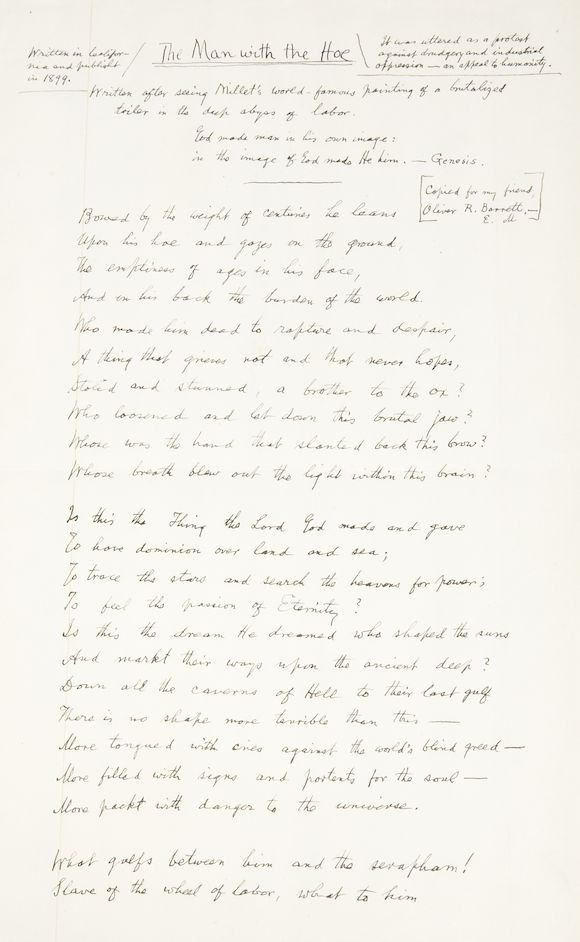 Written in Califor-
nia and publisht
in 1899.
The Man with the Hoe
It was uttered as a protest
against drudgery and industrial
oppression — an appeal to humanity.
Written after seeing Millet's world-famous painting of a brutalized
toiler in the deep abyss of labor.
God made man in his own image:
in the image of God made He him. — Genesis.
[Copied for my friend,
Oliver R. Barrett, —
E. M]
Bowed by the weight of centuries he leans
Upon his hoe and gazes on the ground,
The emptiness of ages in his face,
And on his back the burden of the world.
Who made him dead to rapture and despair,
A thing that grieves not and that never hopes,
Stolid and stunned, a brother to the ox?
Who loosened and let down this brutal jaw?
Whose was the hand that slanted back this brow?
Whose breath blew out the light within this brain?
Is this the Thing the Lord God made and gave
To have dominion over land and sea;
To trace the stars and search the heavens for power;
To feel the passion of Eternity?
Is this the dream He dreamed who shaped the suns
And markt their ways upon the ancient deep?
Down all the caverns of Hell to their last gulf
There is no shape more terrible than this —
More tongued with cries against the world's blind greed —
More filled with signs and portents for the soul —
More packt with danger to the universe.
What gulfs between him and the serapham!
Slave of the wheel of labor, what to him